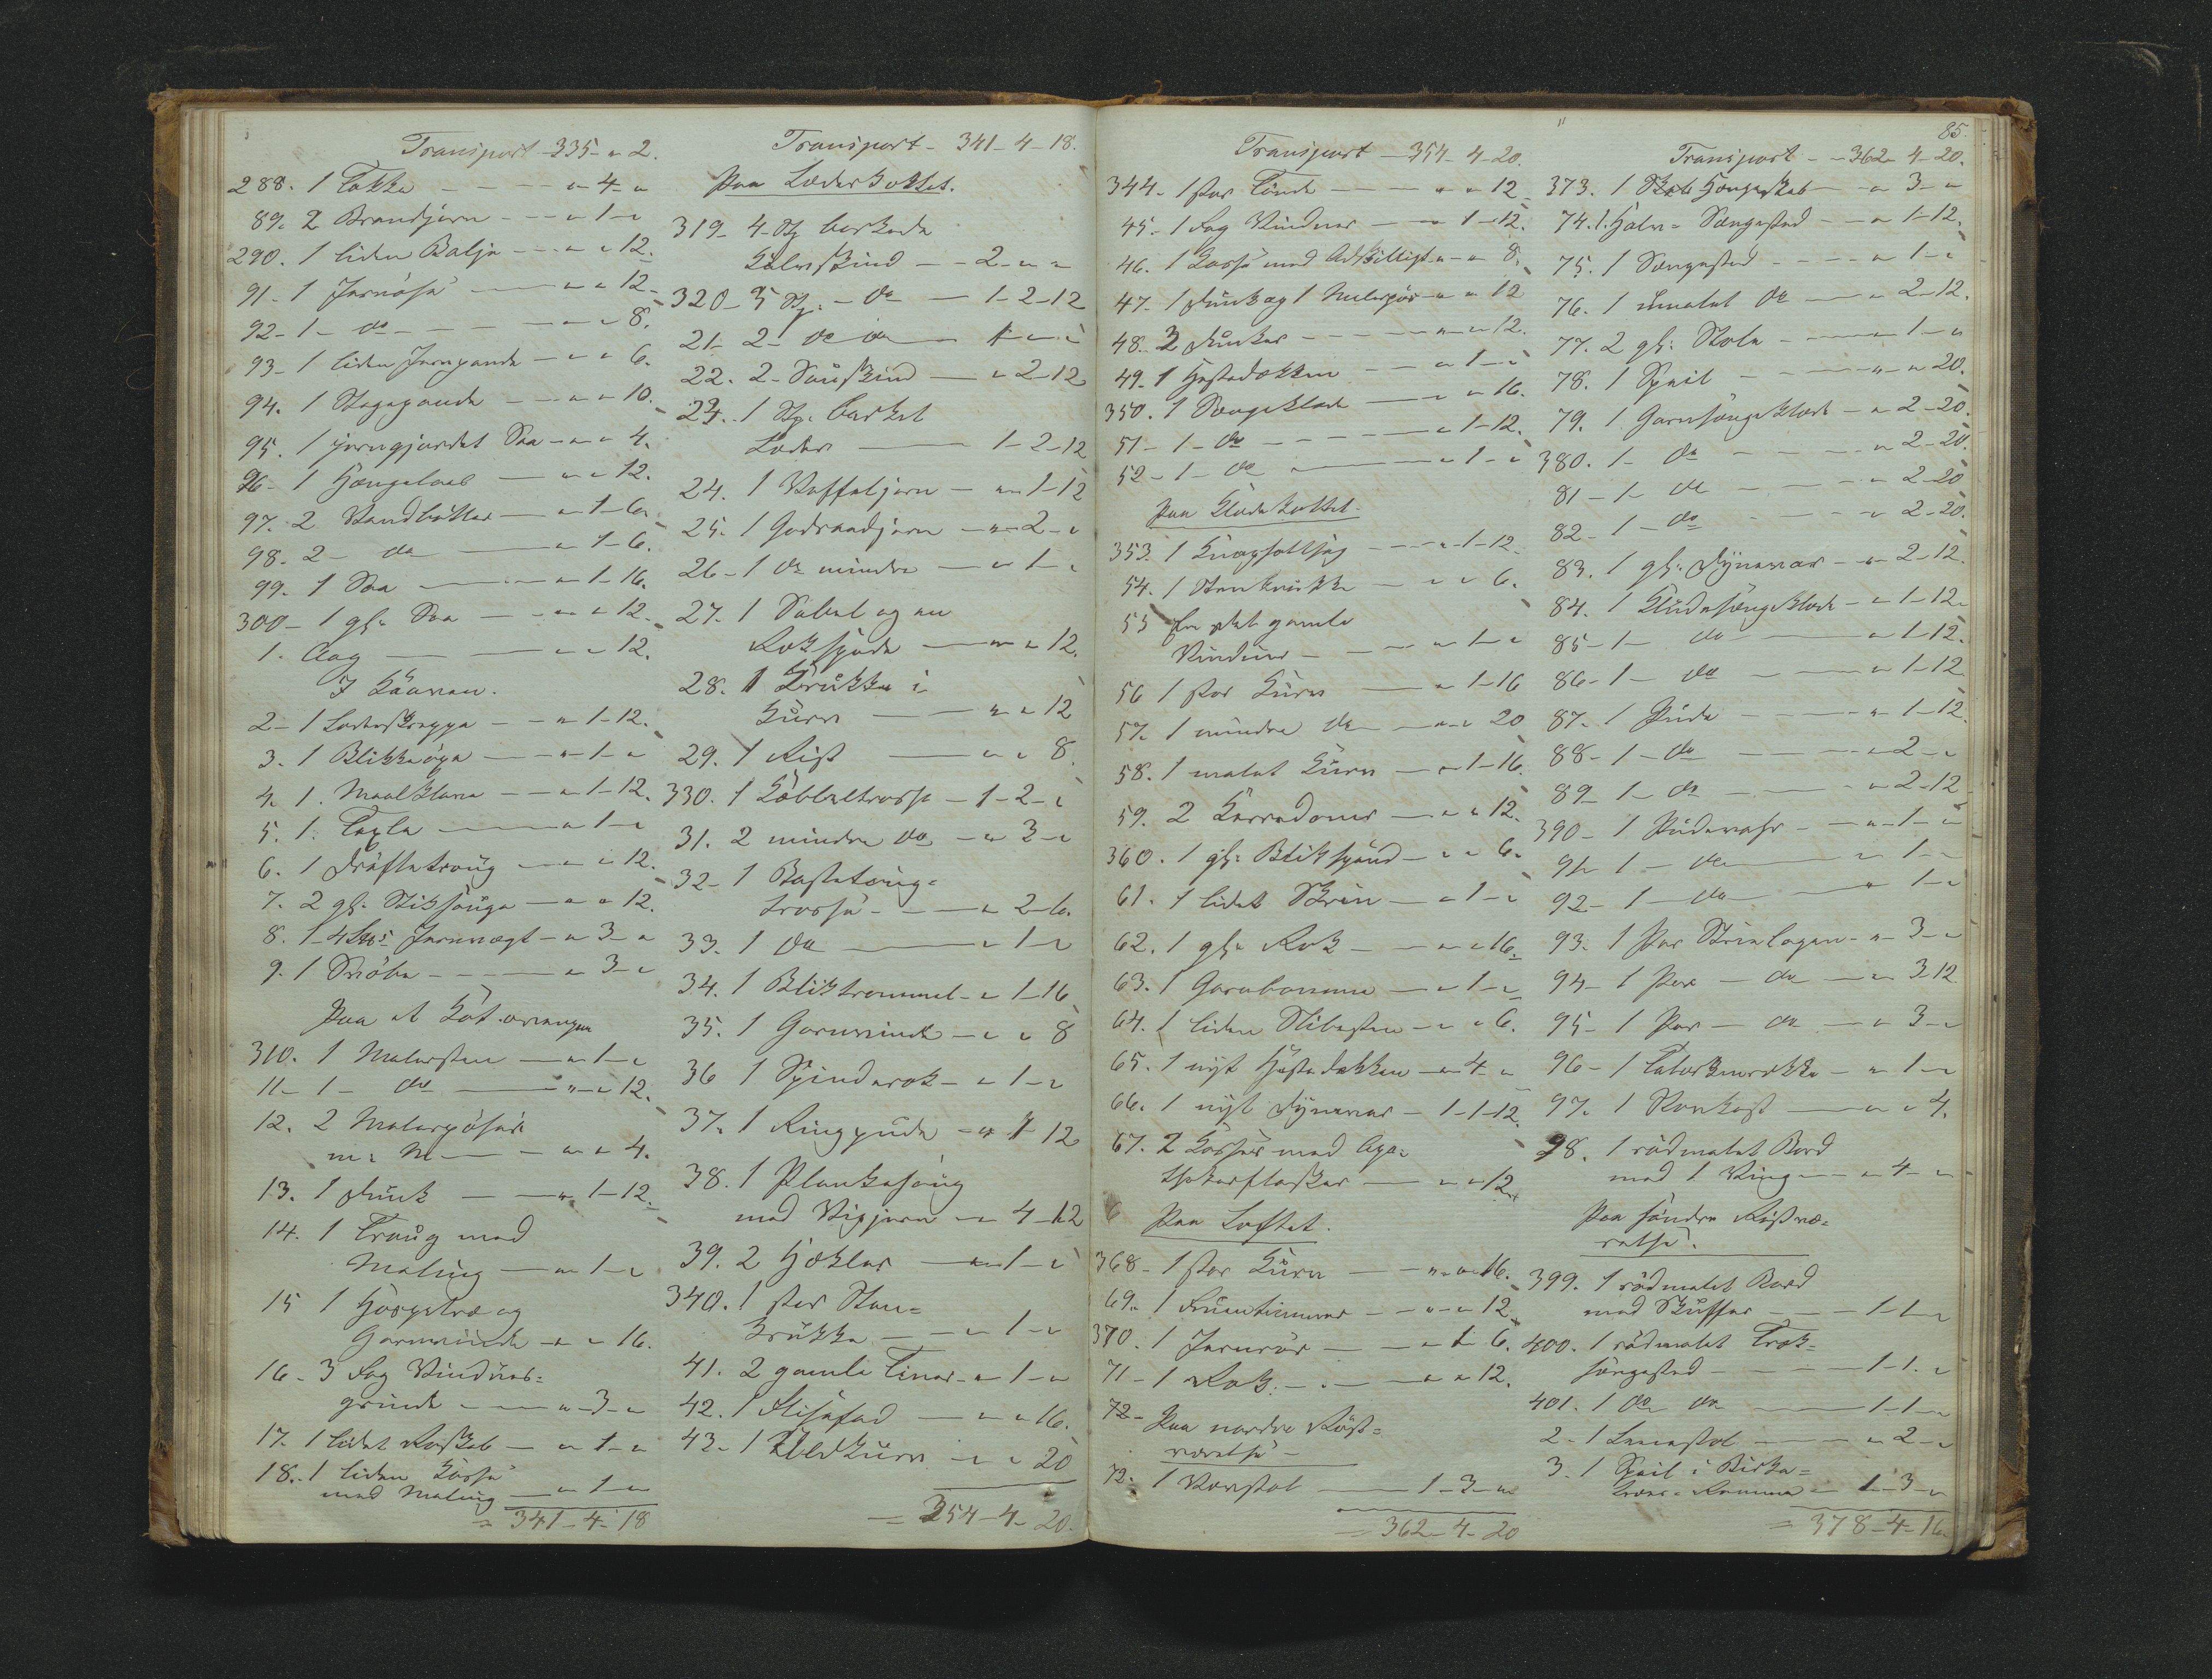 Transport - 335 - " 2.
288. 1 Takke - - - - " 4 - "
89. 2 Brandjern - - - " 1 - "
290. 1 liden Balje - - - " " 12.
91. 1 Jernøse - - " " 12.
92 - 1 - do - - - - " " 8.
93 - 1 liden Jernpande - " " 6.
94. 1 Stegepande - - " " 10.
95. 1 jerngjordet Saa - " " 4.
96 - 1 Hængelaas - " " 12.
97. 2 Vandbøtter - " 1 - 6.
98. 2 - do - " 1 - 6.
99. 1 Saa - " 1 - 16.
300 - 1 gl. Saa - " " 12.
1. Aag - " " 12.
I Kaaven.
2 - 1 Læderskreppe - - " 1 - 12.
3. 1 Blikkøpe - " 1 - "
4. 1. Maalklave - - " 1 - 12.
5. 1. Texle - " 1 - "
6. 1 Drøftetroug - " " 12.
7. 2 gl. Stiksauge - " " 12.
8. 1 - 4 Jernvægt - " 3 - "
9. 1 Snöbe - - - - " 3 - "
Paa
310. 1 Malersten - " 1 - "
11 - 1 - do - " " 12.
12. 2 Malerpøser
m: M - " " 4.
13. 1 Dunk - - " 1 - 12.
14. 1 Traug med
Maling - " 1 - "
15 1 Haspetræ og
Garnvinde - " " 16.
16 - 3 Fag Vindues=
grinde - " 3 - "
17. 1 lidet Roskab - " 1 - "
18. 1 liden Kasse
med Maling - " 1 - "
= 341 - 4 - 18
Transport - 341 - 4 - 18.
paa Læderloftet.
319 - 4 - St. barkede
Kalveskind - - 2 - " "
320 - 5 St. - do - 1 - 2 - 12
21 - 2 - do do - 1 - " "
22. 2 - Saueskind - " 2 - 12
23. 1 St. barket
Læder - 1 - 2 - 12
24. 1 Vaffeljern - " 1 - 12
25. 1 Goderaadjern - " 2 - "
26 - 1 do mindre - " 1 - "
27. 1 Sabel og en
Rokspude - " " 12.
28. 1 Krukke i
Kurv - " " 12
29. 1 Rist - " " 8.
330. 1 Kobbeltrosse - 1 - 2 - "
31. 2 mindre do - " 3 - "
32 - 1 Bastetoug=
trosse - - - " 2 - 6.
33. 1 do - " 1 - "
34. 1 Bliktrommel - " 1 - 16
35. 1 Garnvinde - " " 8
36 1 Spinderok - " 1 - "
37. 1 Ringpude - " 1 - 12
38. 1 Plankesaug
med Vigjern - " 4 - 12
39. 2 Hækler - " 1 - "
340. 1 stor Sten=
krukke - - " 1 - "
41. 2 gamle Tiner - " 1 - "
42. 1 Flisefad - " " 16.
43 - 1 Uldkurv - " " 20
= 354 - 4 - 20.
Transport - 354 - 4 - 20.
344 - 1 stor Tønde - " " 12
45 - 1 Fag Vinduer - " 1 - 12.
46. 1 Kasse med Adskilligt - " " 8.
47 - 1 Dunk og 1 Malerpøs - " " 12
48. 3 Dunker - - - " " 12.
49. 1 Hestedækken - " 1 - "
350. 1 Sengeklæde - " " 16.
51 - 1 - do - - - " 1 - 12.
52 - 1 - do - " 1 - "
paa Klædeloftet.
353. 1 - " 1 - 12.
54. 1 Stenkrukke - " " 6.
55 En Del gamle
Vinduer - - " 1 - "
56 1 stor Kurv - " 1 - 16
57. 1 mindre do - " " 20
58. 1 malet Kurv - " 1 - 16.
59. 2 - " " 12.
360. 1 gl. Blikspand - " " 6.
61. 1 lidet Skrin - " 1 - "
62. 1 gl. Rok - " " 16.
63. 1 Garnbomme - " 1 - "
64. 1 liden Slibesten - " " 6.
65. 1 nyt Hestedækken - " 4 - "
66. 1 nyt Dynevar - 1 - 1 - 12.
67. 2 Kasser med Apo=
thekerflasker - " " 12.
Paa Loftet.
368 - 1 stor Kurv - - " " 16.
69. 1 Fruentimmer - - " " 12.
370. 1 Jernrør - " 1 - 6.
71 - 1 Rok. - - " " 12.
72 - Paa nordre Røst=
værelse -
72. 1 Vævstol - 1 - 3 - "
= 362 - 4 - 20
85.
Transport - - 362 - 4 - 20.
373. 1 Hængeskab - " 3 - "
74. 1. Halv= Sengested - - " 1 - 12.
75. 1 Sengested - - - " 1 - "
76. 1 umalet do - " 2 - 12.
77. 2 gl. Stole - - " 1 - "
78. 1 Speil - - " " 20.
79. 1 Garnsengeklæde - " 2 - 20.
380. 1 - do - - " 2 - 20.
81 - 1 - do - - - " 2 - 20
82 - 1 - do - - - " 2 - 20.
83. 1 gl. Dynevar - - " 2 - 12.
84. 1 Kludesengeklæde - " 1 - 12.
85 - 1 - do - " 1 - 12.
86 - 1 - do - - " 1 - 12
87. 1 Pude - - " 1 - 12.
88 - 1 - do - " 2 - "
89 - 1 - do - - " 2 - 12
390 - 1 Pudevar - - " 1 - "
91 - 1 - do - " 1 - "
92 - 1 - do - " 1 - "
93. 1 Par Strielagen - " 3 - "
94 - 1 Par - do - " 3 - 12
95 - 1 Par - do - " 3 - "
96 - 1 - " 1 - "
97. 1 - " " 4.
98. 1 rødmalet Bord
med 1 Ving - " 4 - "
Paa søndre Røstvæ=
relse.
399. 1 rødmalet Bord
med Skuffer - - 1 - 1 - "
400. 1 rødmalet Træk=
sengested - - 1 - 1. "
401. 1 do do - 1 - 1 - "
2 - 1 Lænestol - " 2 - "
3. 1 Speil i Birke=
træes= Ramme - 1 - 3 - "
= 378 - 4 - 16.